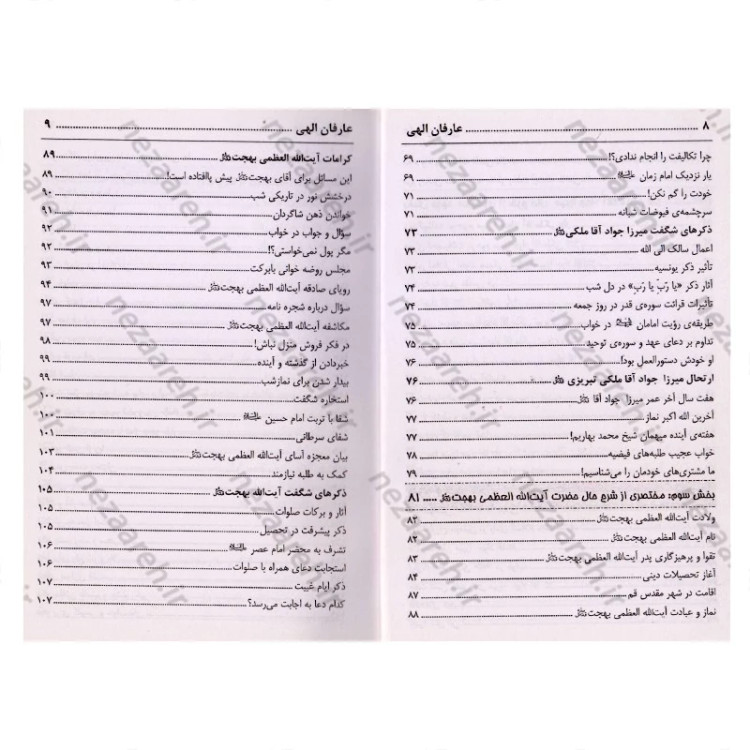 ۸ ........ عارفان الهی
چرا تکالیفت را انجام ندادی؟! ........ ۶۹
یار نزدیک امام زمان ........ ۶۹
خودت را گم نکن! ........ ۷۱
سرچشمه‌ی فیوضات شبانه ........ ۷۱
ذکرهای شگفت میرزا جواد آقا ملکی ........ ۷۳
اعمال سالک الی الله ........ ۷۳
تأثیر ذکر یونسیه ........ ۷۳
آثار ذکر «یا رَبِّ یا رَبِّ» در دل شب ........ ۷۴
تأثیرات قرائت سوره‌ی قدر در روز جمعه ........ ۷۴
طریقه‌ی رؤیت امامان در خواب ........ ۷۵
تداوم بر دعای عهد و سوره‌ی توحید ........ ۷۵
او خودش دستورالعمل بود! ........ ۷۶
ارتحال میرزا جواد آقا ملکی تبریزی ........ ۷۶
هفت سال آخر عمر میرزا جواد آقا ........ ۷۶
آخرین الله اکبر نماز ........ ۷۷
هفته‌ی آینده میهمان شیخ محمد بهاریم! ........ ۷۷
خواب عجیب طلبه‌های فیضیه ........ ۷۸
ما مشتری‌های خودمان را می‌شناسیم! ........ ۷۹
بخش سوم: مختصری از شرح حال حضرت آیت‌الله العظمی بهجت ..... ۸۱
ولادت آیت‌الله العظمی بهجت ........ ۸۲
نام آیت‌الله العظمی بهجت ........ ۸۲
تقوا و پرهیزگاری پدر آیت‌الله العظمی بهجت ........ ۸۳
آغاز تحصیلات دینی ........ ۸۴
اقامت در شهر مقدس قم ........ ۸۷
نماز و عبادت آیت‌الله العظمی بهجت ........ ۸۸
عارفان الهی ........ ۹
کرامات آیت‌الله العظمی بهجت ........ ۸۹
این مسائل برای آقای بهجت پیش پاافتاده است! ........ ۸۹
درخشش نور در تاریکی شب ........ ۹۰
خواندن ذهن شاگردان ........ ۹۱
سؤال و جواب در خواب ........ ۹۲
مگر پول نمی‌خواستی؟! ........ ۹۲
مجلس روضه خوانی بابرکت ........ ۹۳
رویای صادقه آیت‌الله العظمی بهجت ........ ۹۴
سؤال درباره شجره نامه ........ ۹۷
مکاشفه آیت‌الله العظمی بهجت ........ ۹۷
در فکر فروش منزل نباش! ........ ۹۸
خبردادن از گذشته و آینده ........ ۹۹
بیدار شدن برای نمازشب ........ ۹۹
استخاره شگفت ........ ۱۰۰
شفا با تربت امام حسین ........ ۱۰۰
شفای سرطانی ........ ۱۰۱
بیان معجزه آسای آیت‌الله العظمی بهجت ........ ۱۰۳
کمک به طلبه نیازمند ........ ۱۰۴
ذکرهای شگفت آیت‌الله بهجت ........ ۱۰۵
آثار و برکات صلوات ........ ۱۰۵
ذکر پیشرفت در تحصیل ........ ۱۰۵
تشرف به محضر امام عصر ........ ۱۰۶
استجابت دعای همراه با صلوات ........ ۱۰۶
ذکر ایام غیبت ........ ۱۰۷
کدام دعا به اجابت می‌رسد؟ ........ ۱۰۷
nezaareh.ir